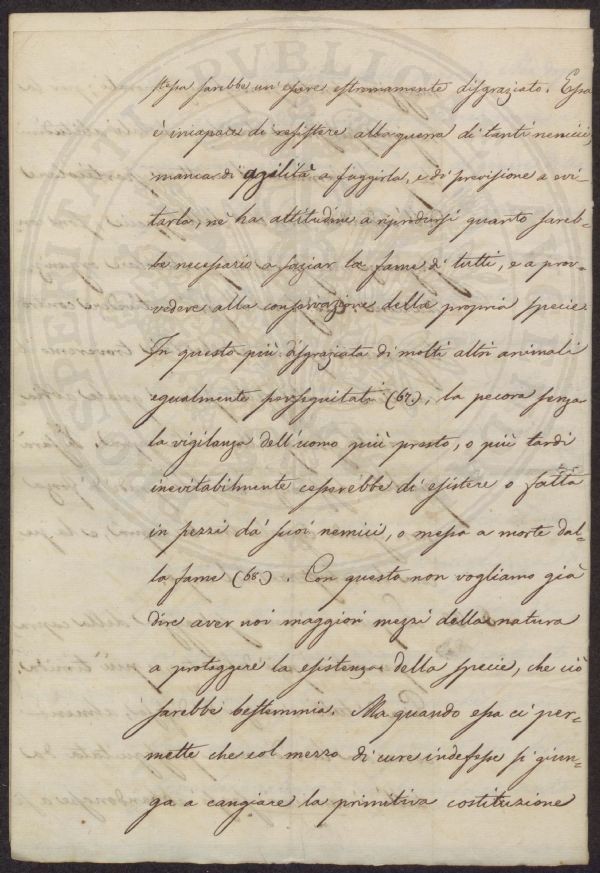 stessa sarebbe un' essere estremamente disgraziato. Essa
è incapace di resistere alla guerra di tanti nemici,
manca di agilità a fuggirla, e di previsione a evi-
tarla, nè ha attitudine a riprodursi quanto sareb-
be necessario a saziar la fame di tutti, e a prov-
vedere alla conservazione della propria specie.
In questo più disgraziata di molti altri animali
egualmente perseguitati (67.), la pecora senza
la vigilanza dell'uomo più presto, o più tardi
inevitabilmente cesserebbe di esistere o fatta
in pezzi da' suoi nemici, o messa a morte dal-
la fame (68.). Con questo non vogliamo già
dire aver noi maggiori mezzi della natura
a proteggere la esistenza della specie, che ciò
sarebbe bestemmia. Ma quando essa ci per-
mette che col mezzo di cure indefesse si giun-
ga a cangiare la primitiva costituzione